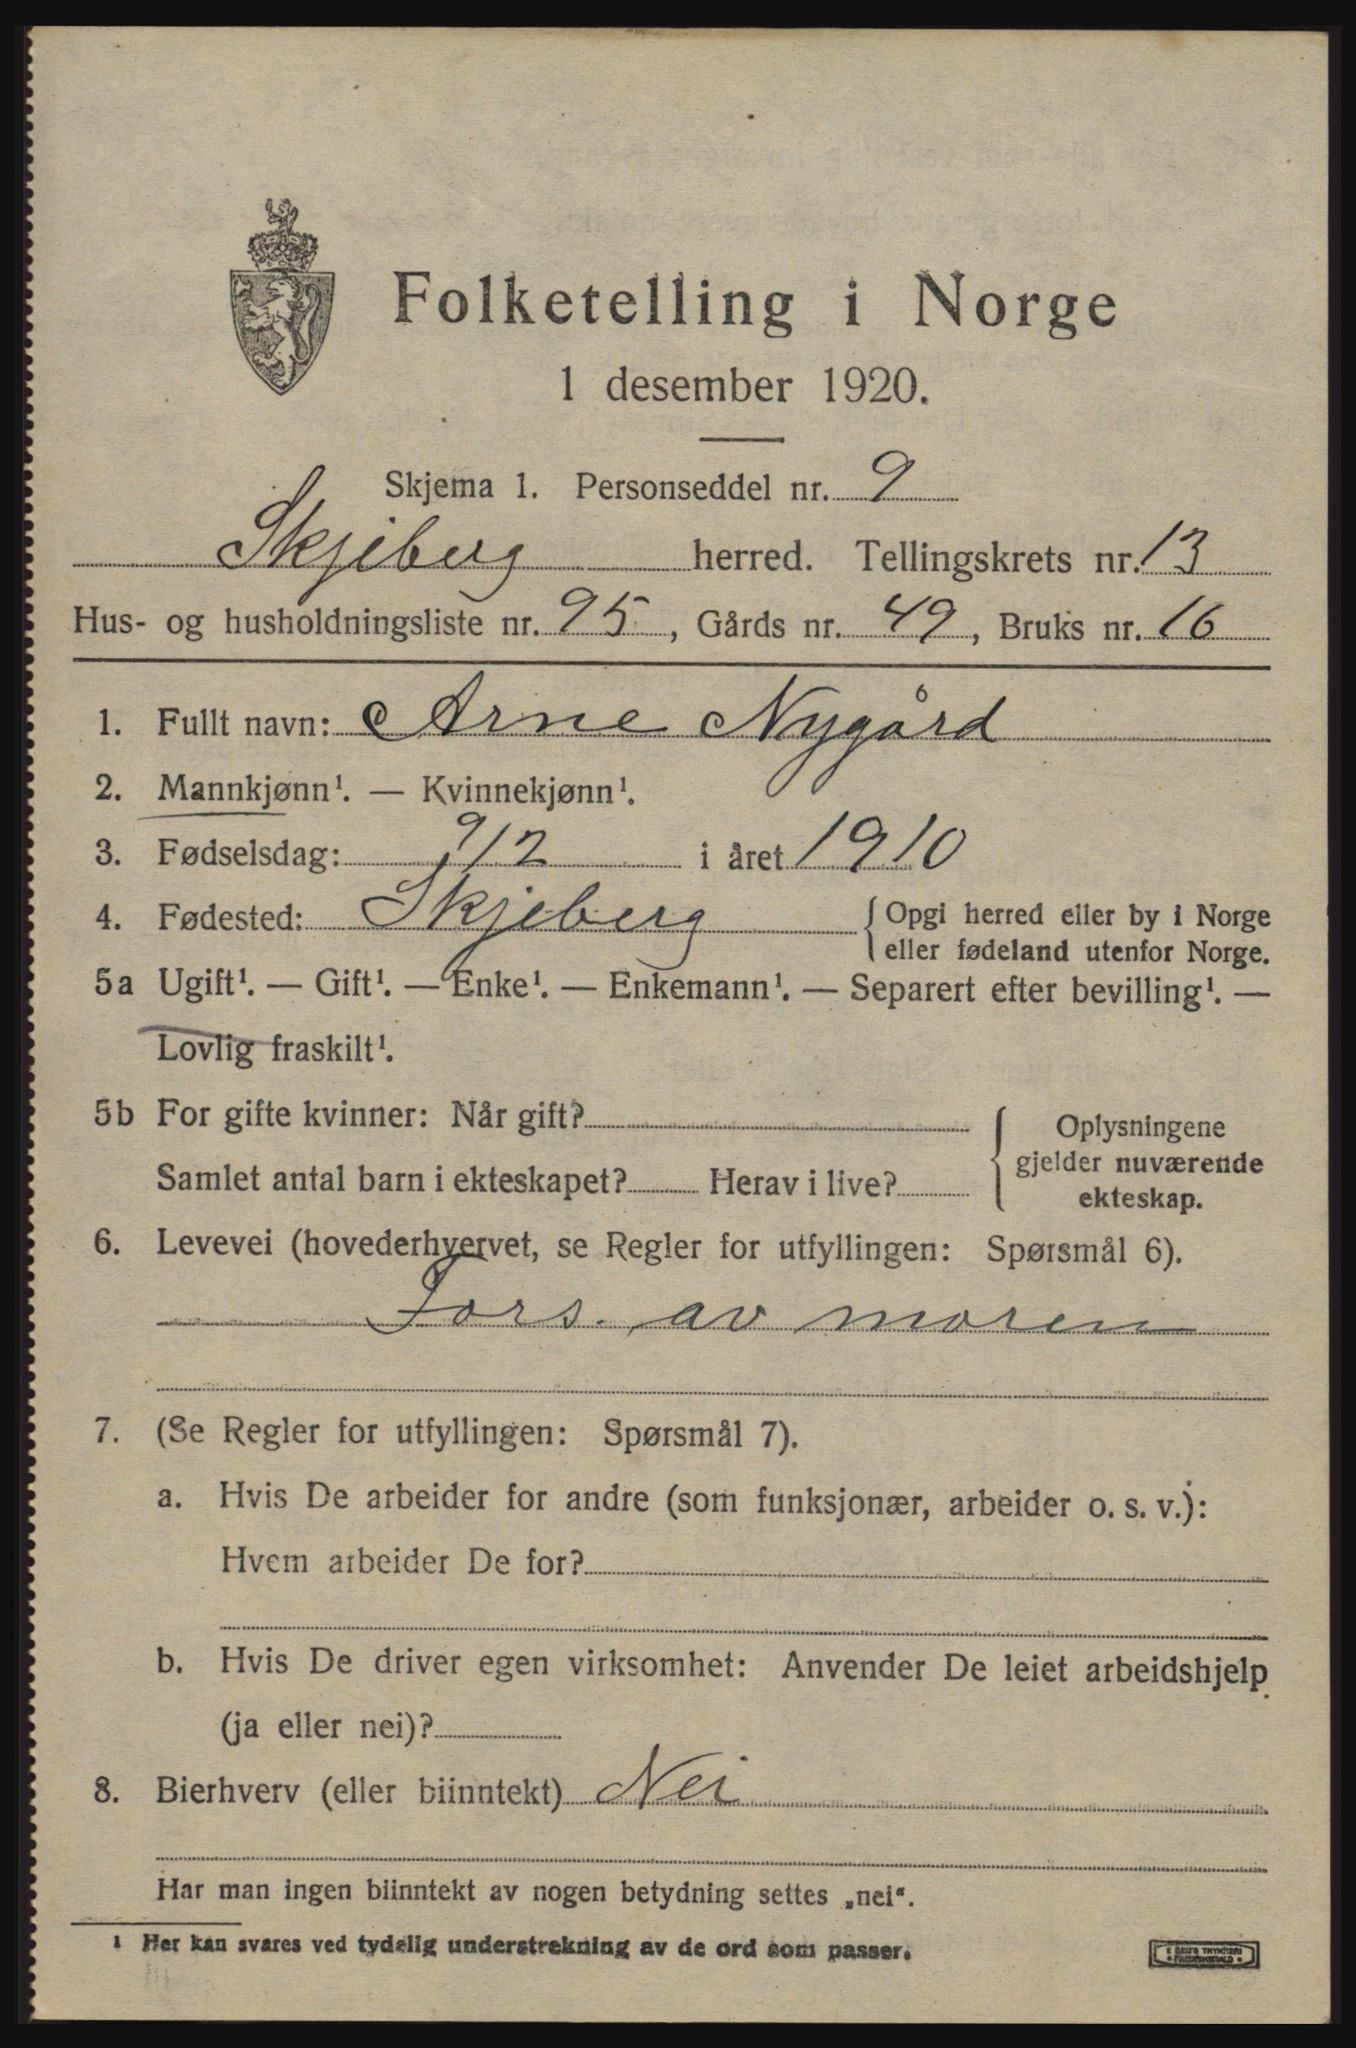 Folketelling i Norge
1 desember 1920.
Skjema 1. Personseddel nr. 9
Skjeberg herred. Tellingskrets nr. 13
Hus- og husholdningsliste nr. 95, Gårds nr. 49, Bruks nr. 16
1. Fullt navn: Arne Nygård
2. Mannkjønn¹. — Kvinnekjønn¹.
3. Fødselsdag: 9/2 i året 1910
4. Fødested: Skjeberg {Opgi herred eller by i Norge
eller fødeland utenfor Norge.
5a Ugift¹. — Gift¹. — Enke¹. — Enkemann¹. — Separert efter bevilling¹. —
Lovlig fraskilt¹.
5b For gifte kvinner: Når gift? {Oplysningene
gjelder nuværende
ekteskap.
Samlet antal barn i ekteskapet? Herav i live?
6. Levevei (hovederhvervet, se Regler for utfyllingen: Spørsmål 6).
Fors. av moren
7. (Se Regler for utfyllingen: Spørsmål 7).
a. Hvis De arbeider for andre (som funksjonær, arbeider o. s. v.):
Hvem arbeider De for?
b. Hvis De driver egen virksomhet: Anvender De leiet arbeidshjelp
(ja eller nei)?
8. Bierhverv (eller biinntekt) Nei
Har man ingen biinntekt av nogen betydning settes „nei“.
¹ Her kan svares ved tydelig understrekning av de ord som passer.